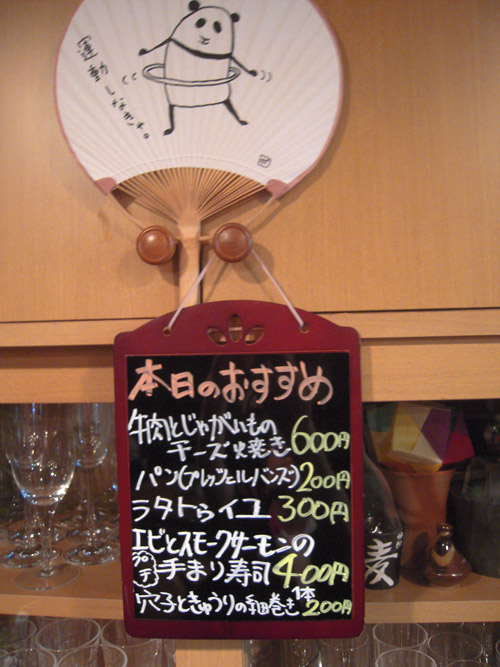 運動しなきゃ。
本日のおすすめ
牛肉とじゃがいもの
チーズ焼き 600円
パン(プレッツェルバンズ) 200円
ラタトゥイユ 300円
エビとスモークサーモンの
手まり寿司 400円
穴子ときゅうりの 巻き 1本 200円
麦